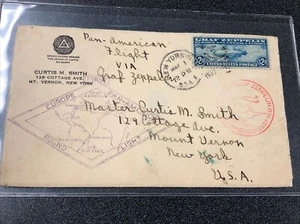 CURTIS M. SMITH
129 COTTAGE AVE.
MT. VERNON, NEW YORK
Pan-American
Flight
VIA
Graf Zeppelin
GRAF ZEPPELIN
NEW YORK
Master Curtis M. Smith
129 Cottage Ave.
Mount Vernon
New York
U.S.A.
EUROPE PAN AMERICAN
ROUND FLIGHT